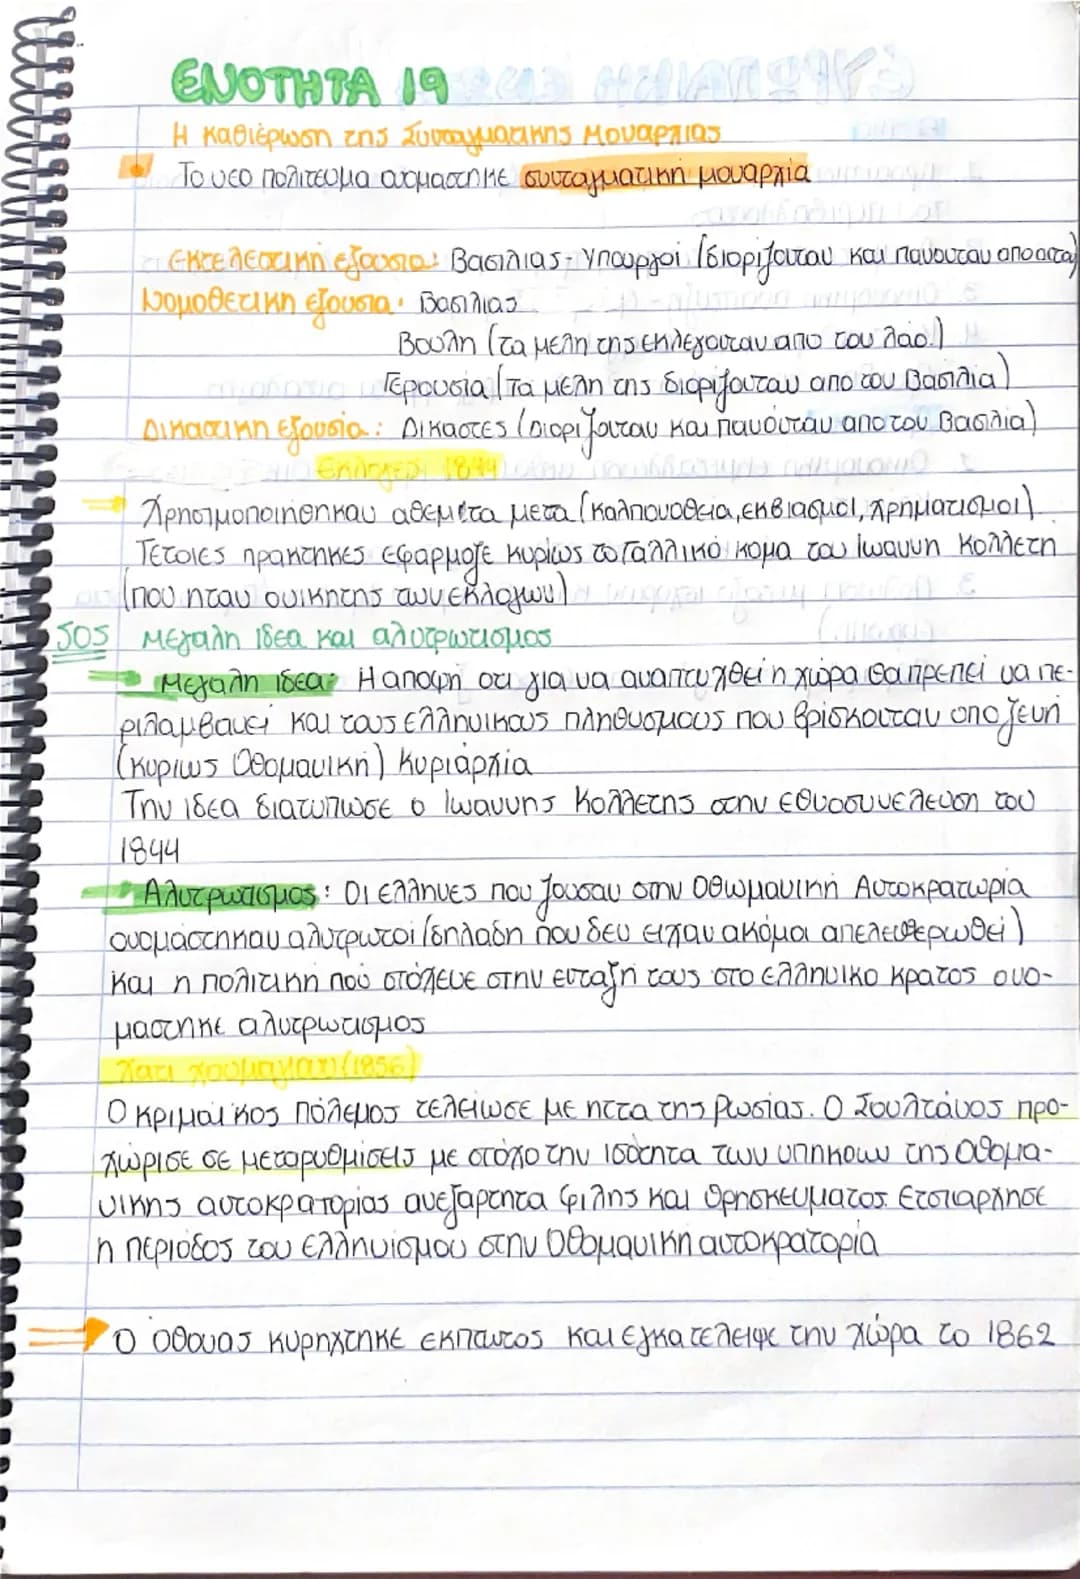 ΕΝΟΤΗΤΑ 19
Η καθιέρωση της Συνταγματικης Μοναρχιας
Το νεο πολιτευμα ονομαστηκε συνταγματική μοναρχία
Εκτελεστική εξουσια: Βασιλιας- Υπουργοί (διορίζονταν και παυονταν απο αυτα)
Νομοθετικη εξουσια: Βασιλιας
Βουλη (τα μελη της εκλεγονταν απο τον λαο.)
Γερουσία (Τα μελη της διοριζονταν απο τον Βασιλια)
Δικαστικη εξουσία: Δικαστες (διορίζονταν και παυόνταν απο τον Βασιλια)
Εκλογες 1844
Χρησιμοποιηθηκαν αθεμιτα μετα (καλπονοθεια, εκβιασμοι, χρηματισμοι)
Τετοιες πρακτηκες εφαρμοξε κυριως το Γαλλικό κομα του Ιωαννη Κολλετη
(που ηταν ονικητης των εκλογων)
SOS Μεγαλη ιδεα και αλυτρωτισμος
Μεγαλη ιδεα: Η αποψη οτι για να αναπτυχθεί η χώρα θα πρεπει να πε-
ριλαμβανει και τους ελληνικους πληθυσμους που βρίσκονταν υπο ξενη
(κυριως Οθομανικη) κυριάρχια
Την ιδεα διατυπωσε ο Ιωαννης Κολλετης στην εθνοσυνελευση του
1844
Αλυτρωτισμος: Οι ελληνες που ζουσαν στην Οθωμανικη Αυτοκρατωρια
ονομάστηκαν αλυτρωτοι (δηλαδη που δεν ειχαν ακόμα απελευθερωθεί)
και η πολιτικη που στόχευε στην ενταξη τους στο ελληνικο κρατος ονο-
μαστηκε αλυτρωτισμος
Χατι χουμαγιαν (1856)
Ο κριμαϊκος πόλεμος τελείωσε με ηττα της Ρωσίας. Ο Σουλτάνος προ-
χώρισε σε μεταρυθμίσεις με στόχο την ισότητα των υπηκοων της Οθομα-
νικης αυτοκρατορίας ανεξαρτητα φιλης και θρησκευματος. Ετσι αρχησε
η περιοδος του ελληνισμου στην Οθομανικη αυτοκρατορία
Ο Οθωνας κυρηχτηκε εκπτωτος και εγκατελειψε την χώρα το 1862